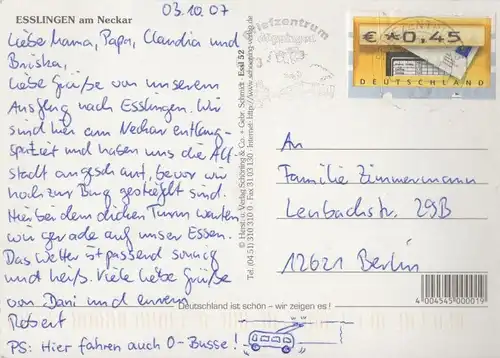 ESSLINGEN am Neckar
03.10.07
Liebe Mama, Papa, Claudia und
Briska,
Liebe Grüße von unserem
Ausflug nach Esslingen. Wir
sind hier am Neckar entlang-
spaziert und haben uns die Alt-
stadt angeschaut, bevor wir
hoch zur Burg gestiefelt sind.
Hier bei dem dicken Turm warten
wir gerade auf unser Essen.
Das Wetter ist passend sonnig
und heiß. Viele liebe Grüße
von Dani und eurem
Robert
PS: Hier fahren auch O-Busse!
© Herst. u. Verlag Schöning & Co. + Gebr. Schmidt · Essl 52
Tel. (04 51) 310 310 0 · Fax 31 03 130 · Internet: http://www.schoening-verlag.de
Deutschland ist schön – wir zeigen es!
Briefzentrum
€ *0,45
DEUTSCHLAND
An
Familie Zimmermann
Lenbachstr. 29B
12621 Berlin
4 004545 000019